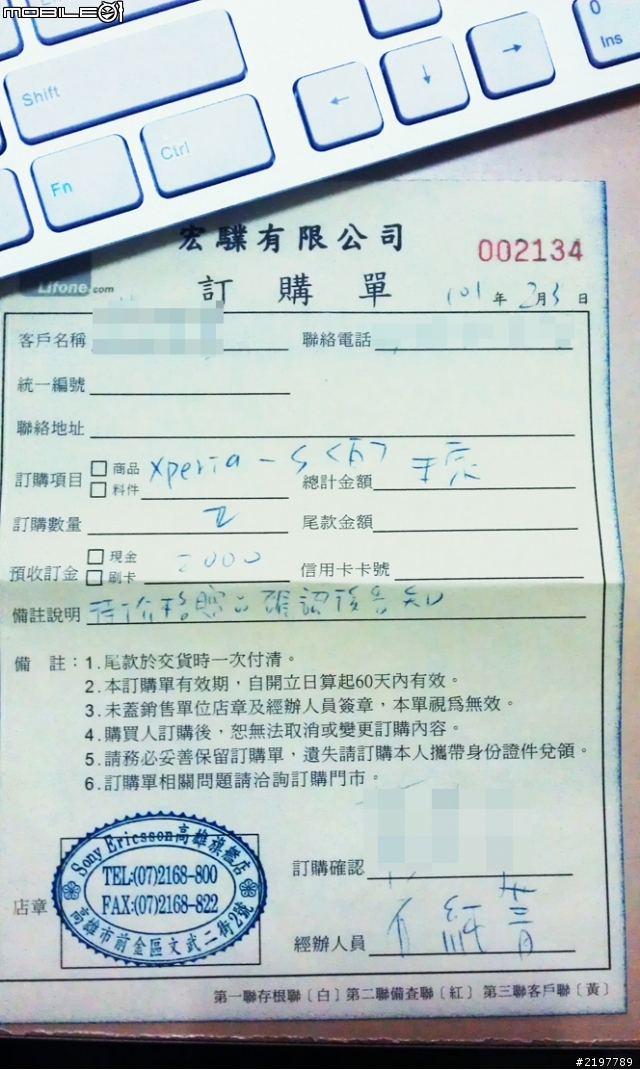 MOBILE01
0
Ins
Shift
←
↓
→
Fn
Ctrl
宏驜有限公司
002134
Lifone.com
訂購單
101年2月3日
客戶名稱
聯絡電話
統一編號
聯絡地址
訂購項目 □商品 □料件 Xperia-S 總計金額
訂購數量 2 尾款金額
預收訂金 □現金 □刷卡 2000 信用卡卡號
備註說明 待價格贈品確認後告知
備 註：1.尾款於交貨時一次付清。
2.本訂購單有效期，自開立日算起60天內有效。
3.未蓋銷售單位店章及經辦人員簽章，本單視為無效。
4.購買人訂購後，恕無法取消或變更訂購內容。
5.請務必妥善保留訂購單，遺失請訂購本人攜帶身份證件兌領。
6.訂購單相關問題請洽詢訂購門市。
訂購確認
店章
Sony Ericsson高雄旗艦店
TEL:(07)2168-800
FAX:(07)2168-822
高雄市前金區文武二街2號
經辦人員
第一聯存根聯〔白〕第二聯備查聯〔紅〕第三聯客戶聯〔黃〕
#2197789